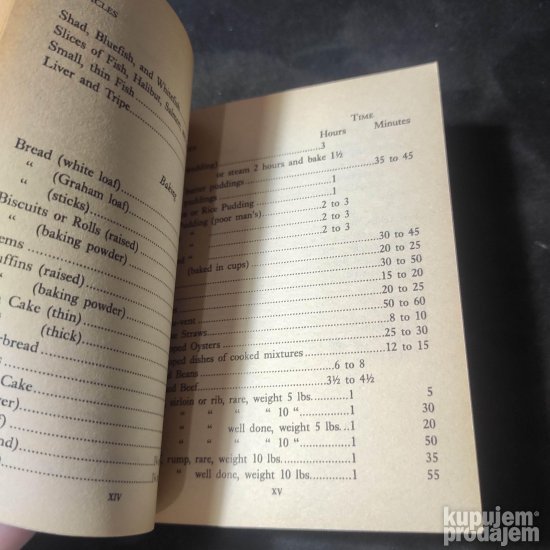 ICLES
Shad, Bluefish, and Whitefish,
Slices of Fish, Halibut, Salmon,
Small, thin Fish
Liver and Tripe
Baking
Bread (white loaf)
“ (Graham loaf)
“ (sticks)
Biscuits or Rolls (raised)
“ (baking powder)
ems
uffins (raised)
“ (baking powder)
Cake (thin)
“ (thick)
rbread
Cake
er)
f)
nd)
)
XIV
TIME
Hours Minutes
3
udding)
or steam 2 hours and bake 1½
puddings 35 to 45
puddings 1
s or Rice Pudding 1
Pudding (poor man's) 2 to 3
“ 2 to 3
“ 2 to 3
“
(baked in cups) 30 to 45
20 to 25
30 to 50
15 to 20
20 to 25
-vent 50 to 60
e Straws 8 to 10
ped Oysters 25 to 30
pped dishes of cooked mixtures 12 to 15
d Beans 6 to 8
ed Beef 3½ to 4½
sirloin or rib, rare, weight 5 lbs. 1 5
“ “ “ “ 10 “ 1 30
“ “ well done, weight 5 lbs. 1 20
“ “ “ “ 10 “ 1 50
rump, rare, weight 10 lbs. 1 35
“ well done, weight 10 lbs. 1 55
XV
kupujem
prodajem